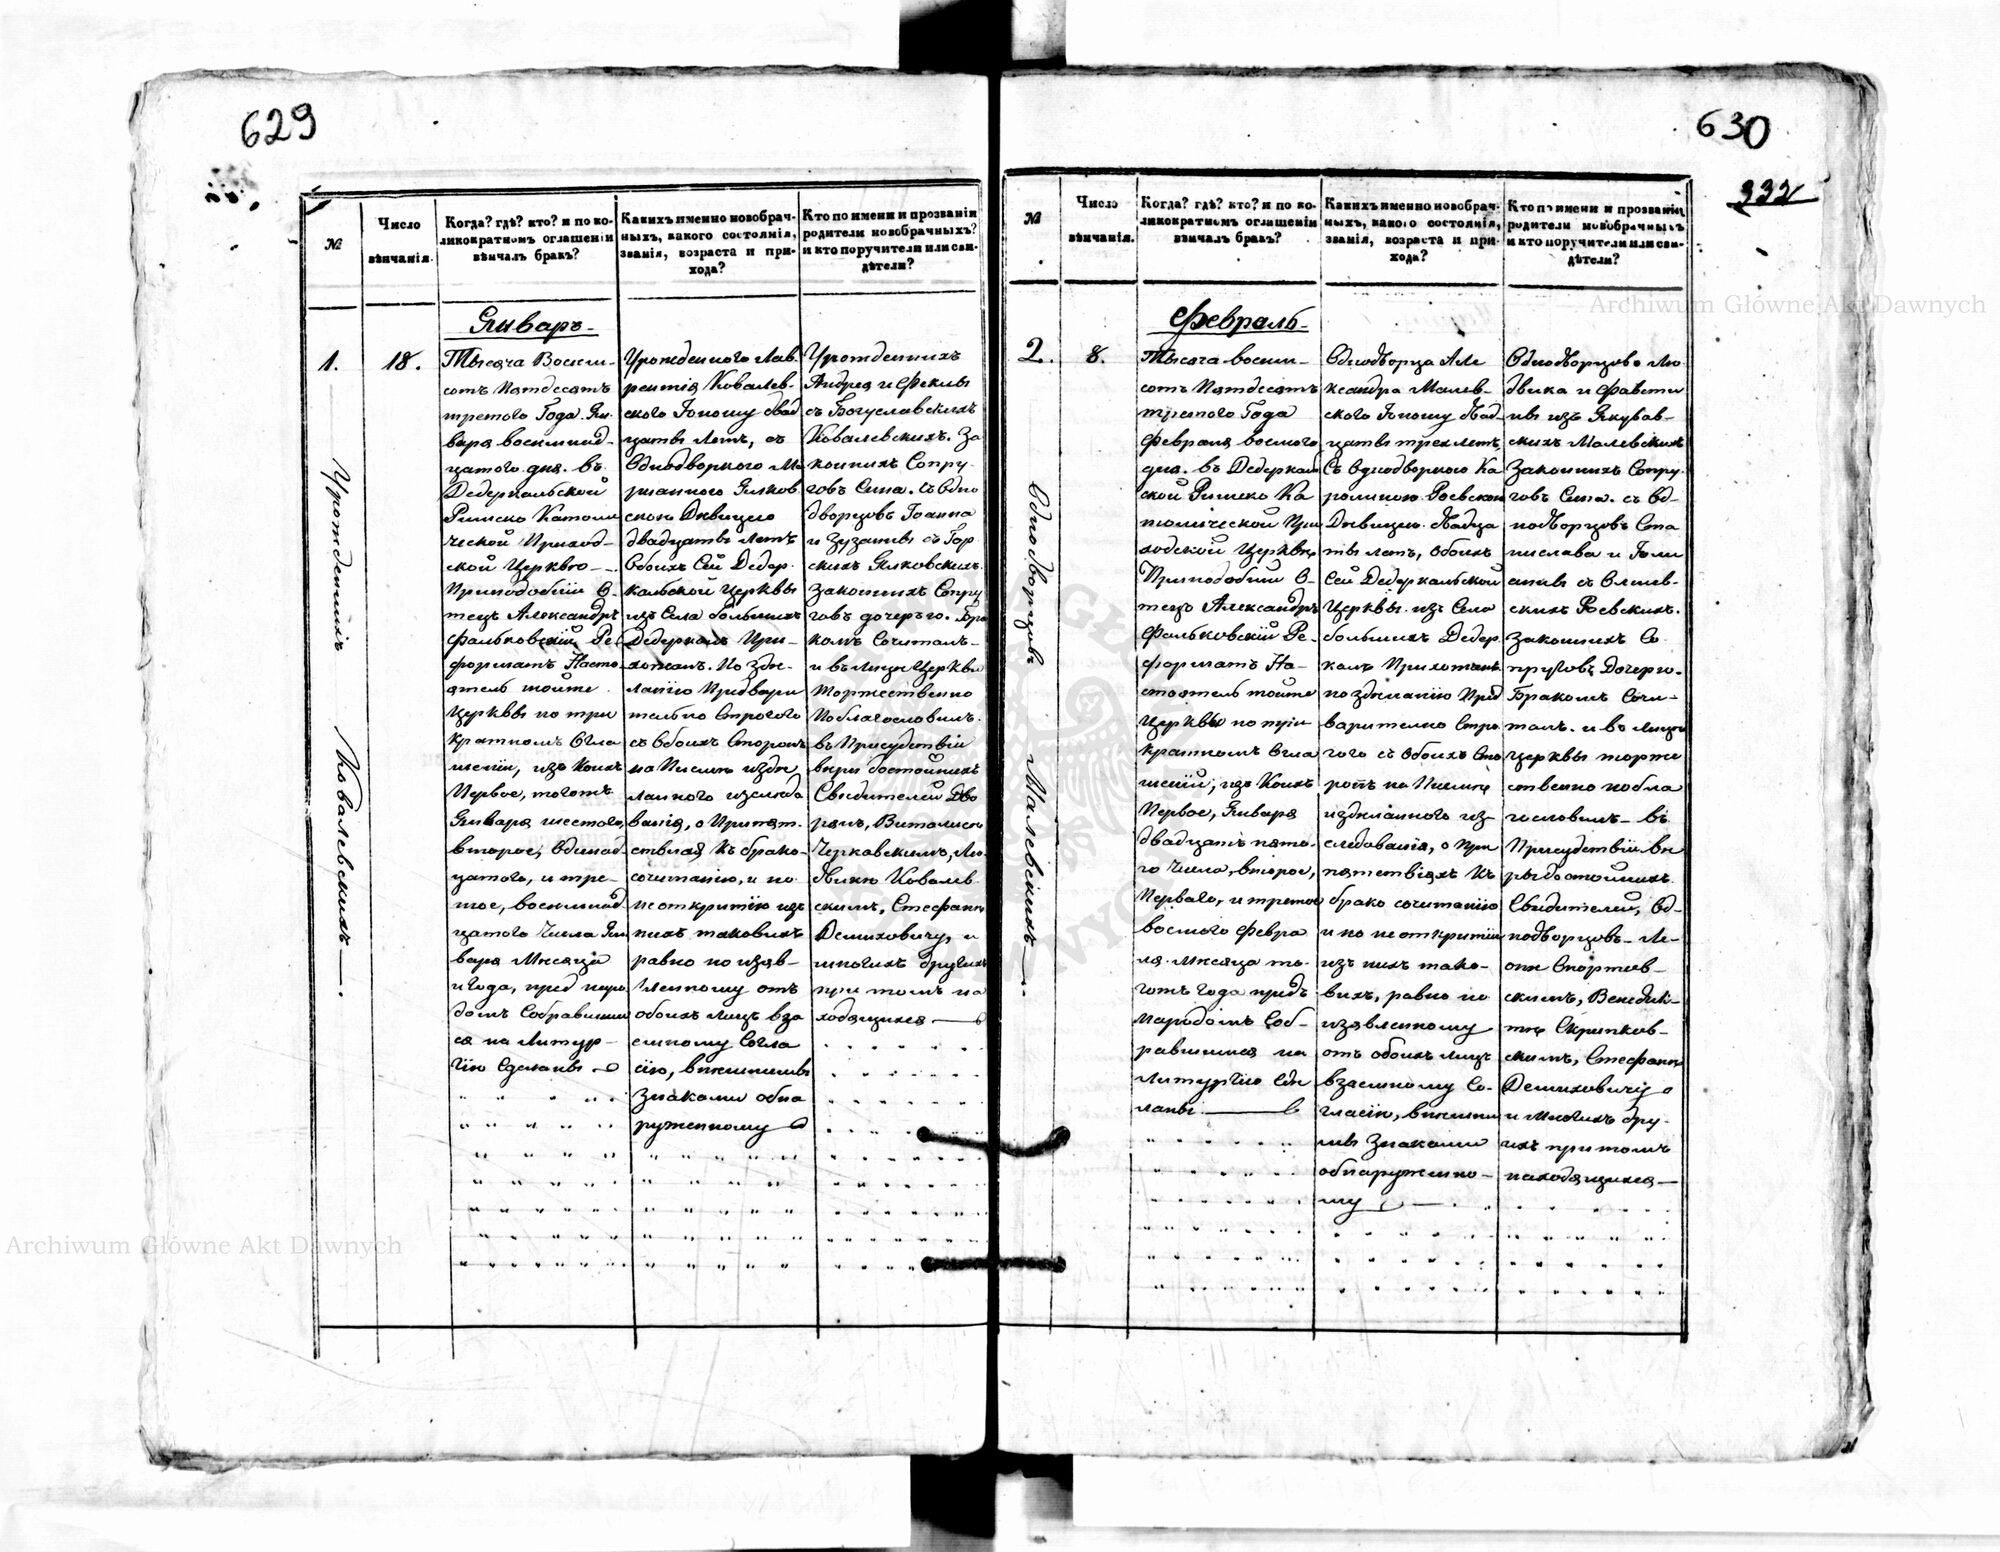 629
№
Число
вѣнчанія.
Когда? гдѣ? кто? и по ко-
ликократномъ оглашеніи
вѣнчалъ бракъ?
Какихъ именно новобрач-
ныхъ, какого состоянія,
званія, возраста и при-
хода?
Кто по имени и прозванія
родители новобрачныхъ?
и кто поручители или сви-
дѣтели?
1.
Урожденнихъ Ковалевскихъ
18.
Январъ
Тысяча Восем-
сотъ Пятдесятъ
третого Года Ян-
варя восемнад-
цатого дня. въ
Дедеркальской
Римско Католи
ческой Приход-
ской Церквю
Приподобній О-
тецъ Александръ
Фальковскій Ре-
форматъ Насто-
ятель тойже
Церквы по три
кратномъ Огла
шеніи, изъ коихъ
Первое, тогожъ
Января шестого,
второе, Одинад-
цатого, и тре-
тое, восемнад
цатого Числа Ян
варя Мѣсяца
и Года, пред наро
домъ Собравшим
ся на Литур-
гію Сдѣланы
Урожденного Лав-
рентія Ковалев-
ского Юношу двад
цаты лѣтъ, съ
Однодворкого Ма
рианного Ялков
скою Дѣвицею
двадцаты лѣтъ
Обоихъ Сей Дедер-
кальской Церквы
изъ Села большихъ
Дедеркалъ При-
хожанъ. По здѣ-
ланію Придвари
тельно Строгого
съ Обоихъ Сторонъ
на Писмѣ издѣ
ланного изслѣдо
ванія, о Припят-
ствіяхъ къ брако-
сочитанію, и по
неоткритію изъ
нихъ таковихъ
равно по изяв-
ленному отъ
обоихъ лицъ вза
емному Согла
сію, внешнимы
Знаками обна
руженному
Урожденнихъ
Андрея и Феклы
съ Богуславскихъ
Ковалевскихъ. За
конихъ Супру-
говъ Сина. съ Одно
дворцовъ Іоанна
и Зузанны съ Гор
скихъ Ялковскихъ.
законихъ Супру
говъ дочерью. Бра
комъ Сочиталъ-
и въ лицѣ Церквы
Торжественно
Поблагословилъ.
въ Присудствіи
вѣри достойнихъ
Свидителей Дво
рянъ, Виталисы
Черкавскимъ, Лю-
двикю Ковалев
скимъ, Стефаны
Демиховичу, и
многихъ другихъ
при томъ на
ходящихся
630
332
№
Число
вѣнчанія.
Когда? гдѣ? кто? и по ко-
ликократномъ оглашеніи
вѣнчалъ бракъ?
Какихъ именно новобрач-
ныхъ, какого состоянія,
званія, возраста и при-
хода?
Кто по имени и прозванія
родители новобрачныхъ
и кто поручители или сви-
дѣтели?
2.
Однодворцовъ Малевскихъ
8.
Февраль
Тысяча восем-
сотъ Пятдесятъ
третого Года
Февраля восмого
дня. въ Дедеркаль
ской Римско Ка
толической При
ходской Церквѣ
Приподобній О-
тецъ Александръ
Фальковскій Ре-
форматъ На-
стоятель тойже
Церквы по три
кратномъ Огла
шеніи, изъ Коихъ
Первое, Января
двадцатъ пято-
го Числа, второе,
Перваго, и третое
восмого Февра
ля Мѣсяца то-
гожъ Года предъ
Народомъ Соб-
равшимся на
Литургію Сдѣ
ланы
Однодворца Але
ксандра Малев-
ского Юношу двад-
цаты трех лѣтъ,
Съ Однодворкого Ка
ролиного Роевскою
Дѣвицею. двадца
ты лѣтъ, Обоихъ
Сей Дедеркальской
Церквы изъ Села
большихъ Дедер
калъ Прихожанъ
по здѣланію Пред
варително Стро
гого съ Обоихъ Сто
ронъ на Писмѣ
издѣланного из-
слѣдованія, о При
пятствіяхъ Къ
брако сочитанію
и по неоткритіи
изъ нихъ тако-
вихъ, равно по
изявленному
отъ обоихъ лицъ
взаемному Со-
гласію, внешни
мы Знаками
обнаруженно-
му
Однодворцовъ Лю
двика и Фавсти
ны изъ Якубов-
скихъ Малевскихъ
Законихъ Супру-
говъ Сина. съ Од-
нодворцовъ Ста
нислава и Юли
анны съ Олшев-
скихъ Роевскихъ.
Законихъ Со-
пруговъ Дочерю.
Бракомъ Сочи-
талъ. и во лицѣ
церквы торже
ственно побла
гословилъ въ
Присудствіи вѣ
ры достойнихъ
Свидителей, Од-
нодворцовъ Ле-
оны Спортов-
скимъ, Венедик-
ты Скрипков-
скимъ, Стефаны
Демиховичу
и Многихъ дру-
ихъ притомъ
находящихся
Archiwum Główne Akt Dawnych
Archiwum Główne Akt Dawnych